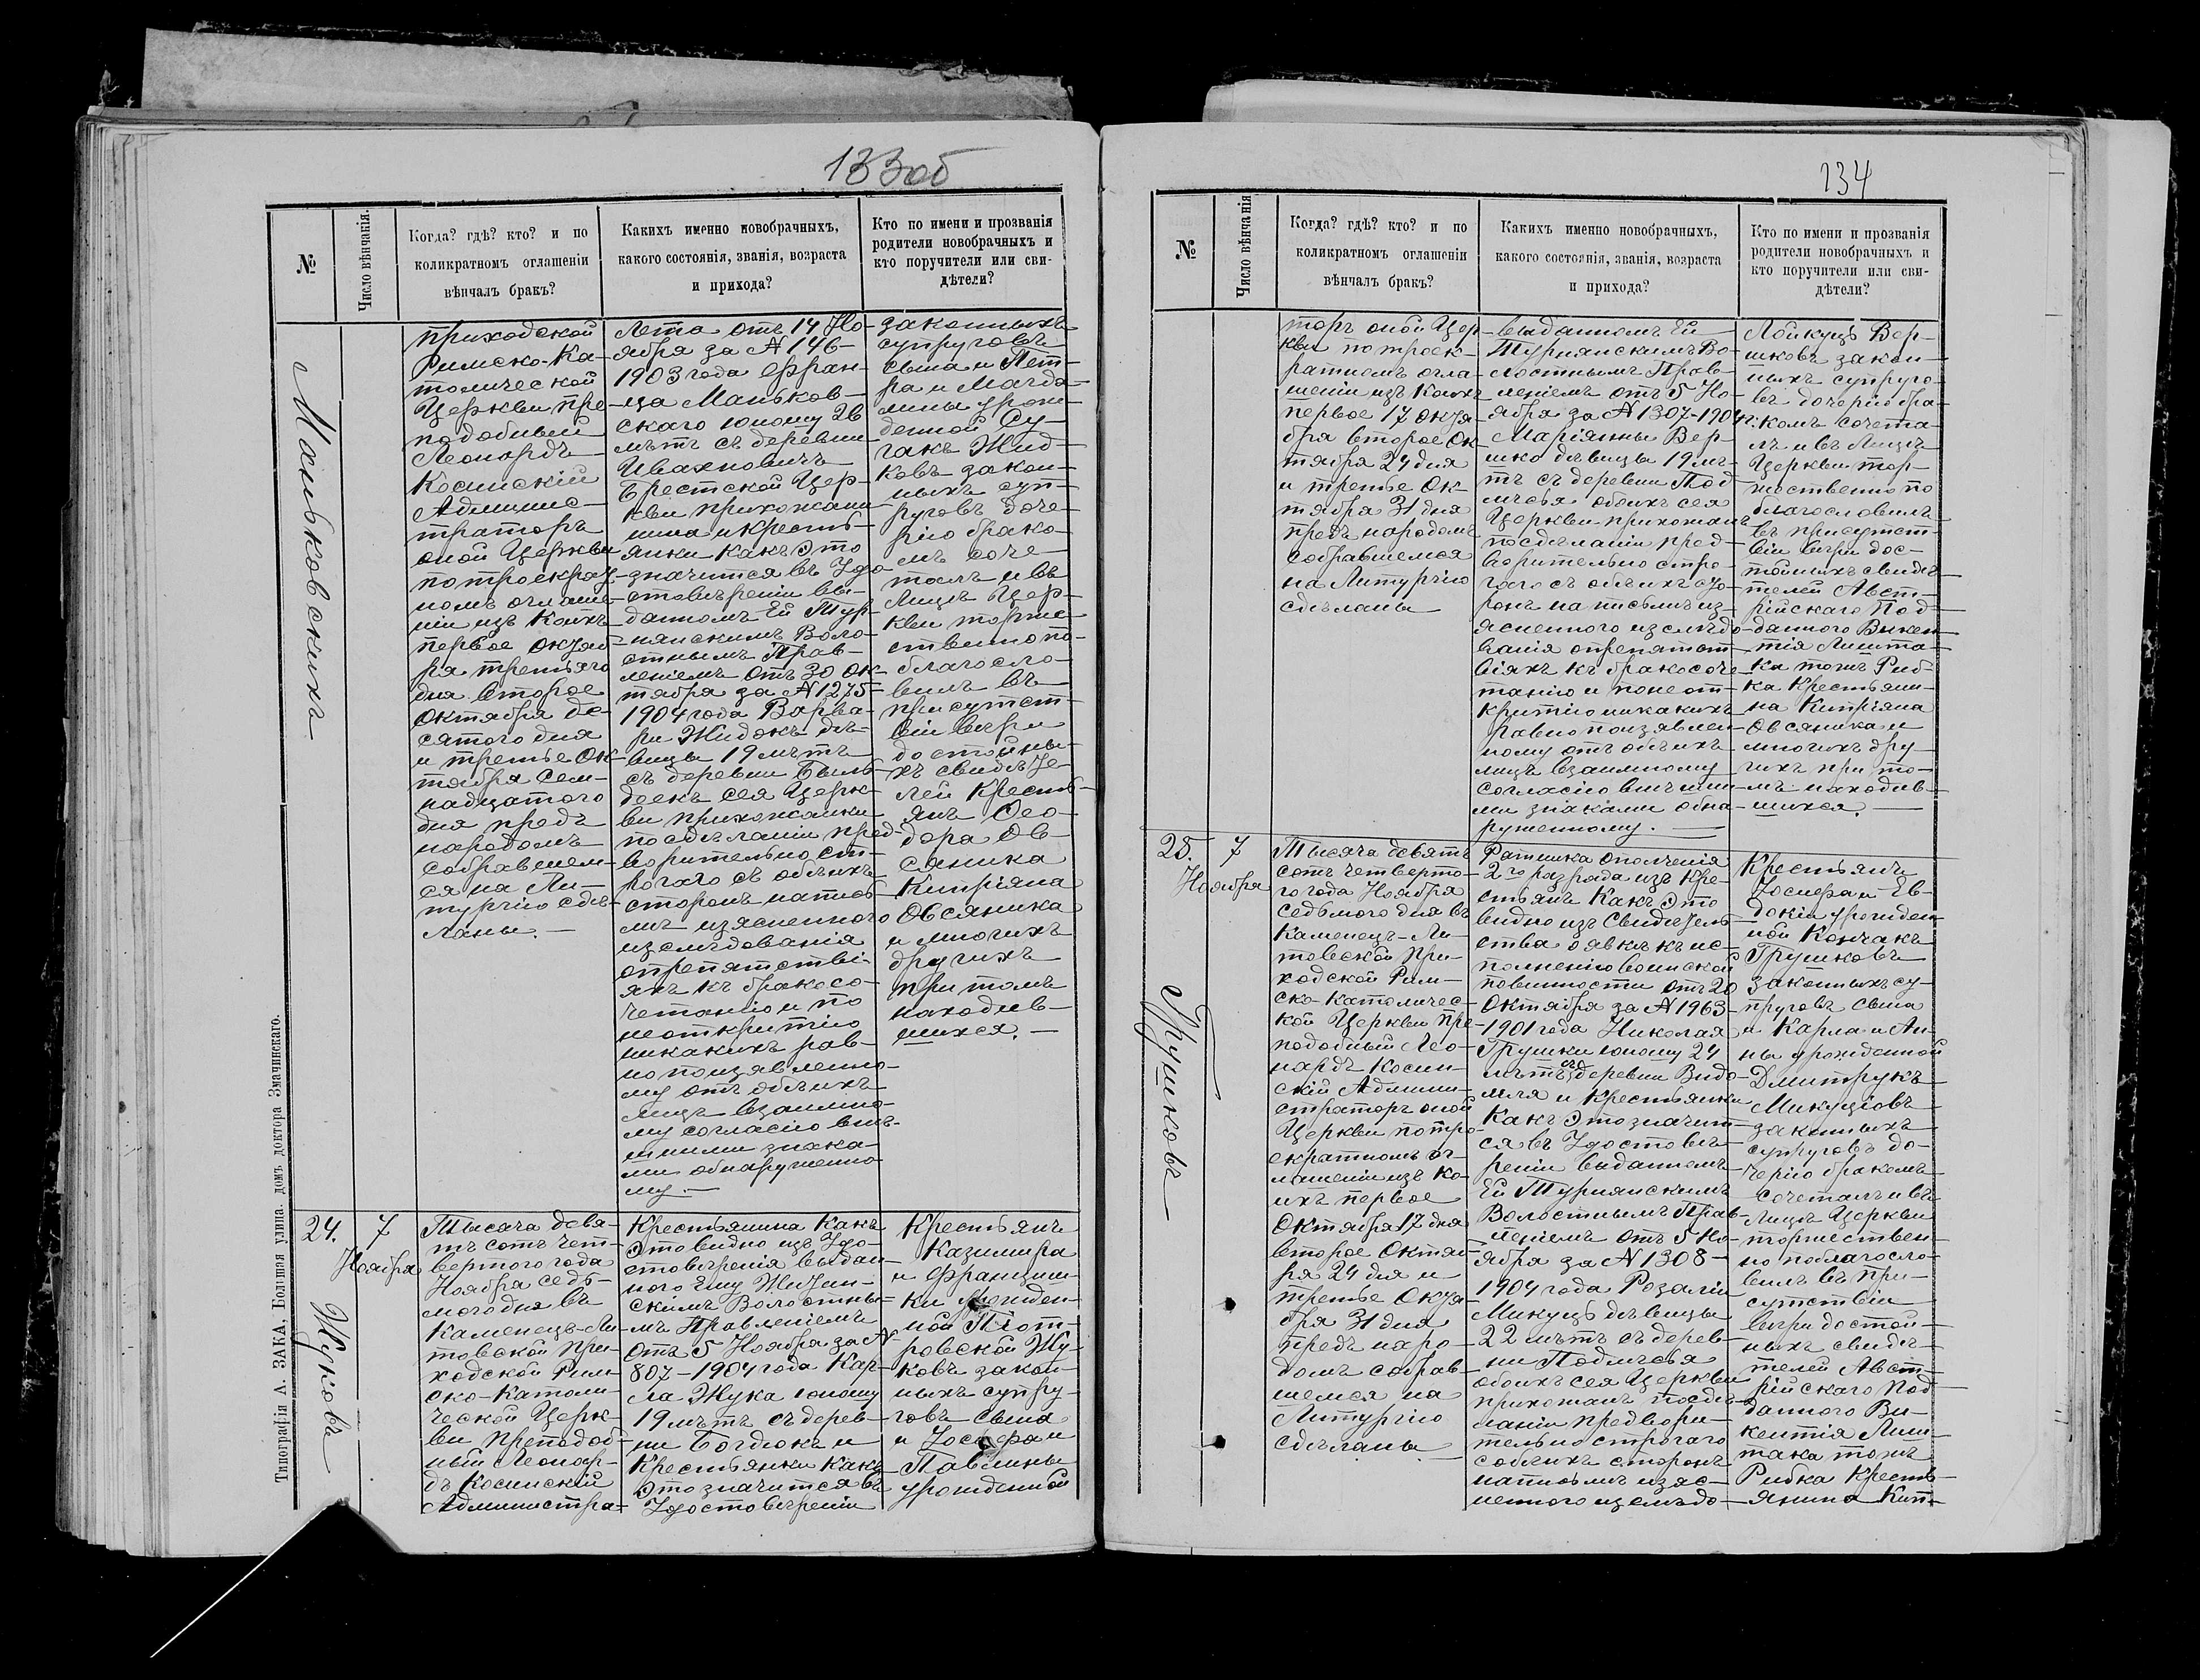 133об
№
Число вѣнчанія.
Когда? гдѣ? кто? и по
коликратномъ оглашеніи
вѣнчалъ бракъ?
Какихъ именно новобрачныхъ,
какого состоянія, званія, возраста
и прихода?
Кто по имени и прозванія
родители новобрачныхъ и
кто поручители или сви-
дѣтели?
Маньковскихъ
приходской
Римско-Ка-
толической
Церкви пре-
подобный
Леонардъ
Косинскій
Админис-
траторъ
оной Церкви
по троекрат-
номъ оглаше-
ніи изъ коихъ
первое октяб-
ря третьяго
дня второе
Октября де-
сятого дня
и третье Ок-
тября сем-
надцатого
дня предъ
народомъ
собравшем-
ся на Ли-
тургію сдѣ-
ланы.
Лета отъ 14 Но-
ября за № 146-
1903 года Фран-
ца Маньков-
скаго юношу 26
лѣтъ съ деревни
Ивахновичъ
Брестской Цер-
кви прихожани-
нина и Кресть-
янки какъ это
значится въ Удо-
стовѣреніи вы-
данномъ Ей Тур-
нянскимъ Воло-
стнымъ Прав-
леніемъ отъ 30 Ок-
тября за № 1275-
1904 года Варва-
ри Жидокъ дѣ-
вицы 19 лѣтъ
съ деревни Быль-
деекъ сея Церк-
ви прихожанки
по сдѣланіи пред-
ворительно ст-
рогаго съ обѣихъ
сторонъ на пись-
мѣ изясненного
изслѣдованія
опрепятстві-
яхъ къ бракосо-
четанію и по
неоткрытію
никакихъ рав-
но по изявленно-
му отъ обѣихъ
лицъ взаимно-
му согласію внѣ-
шними знака-
ми обнаруженно-
му.
законныхъ
супруговъ
сына и Пет-
ра и Магда-
лины урож-
денной Су-
гакъ Жид-
ковъ закон-
ныхъ суп-
руговъ доче-
рію брако-
мъ соче-
талъ и въ
Лицѣ Цер-
кви торже-
ственно по-
благосло-
вилъ въ
присутст-
віи вѣри
достойны-
хъ свидѣте-
лей Кресть-
янъ Фео-
дора Ов-
сяника
Кипріяна
Овсяника
и многихъ
другихъ
при томъ
находив-
шихся.
24.
7
Ноября
Жуковъ
Тысяча девя-
тъ сотъ чет-
вертого года
Ноября седь-
мого дня въ
Каменецъ-Ли-
товской При-
ходской Рим-
ско-Католи-
ческой Церк-
ви преподоб-
ный Леонар-
дъ Косинскій
Администра-
Крестьянина Какъ
Это видно изъ Удо-
стовѣренія выдан-
ного Ему Житин-
скимъ Волостны-
мъ Правленіемъ
отъ 5 Ноября за №
807-1904 года Кар-
ла Жука юношу
19 лѣтъ съ дерев-
ни Богдюки и
Крестьянки Какъ
Это значится въ
Удостовѣреніи
Крестьянъ
Казимира
и Францеш-
ки урожден-
ной Піот-
ровской Жу-
ковъ закон-
ныхъ супру-
говъ сына
и Іосифа и
Павлины
урожденной
Типографія А. ЗАКА, Большая улица. домъ доктора Змачинскаго.
134
№
Число вѣнчанія
Когда? гдѣ? кто? и по
коликратномъ оглашеніи
вѣнчалъ бракъ?
Какихъ именно новобрачныхъ,
какого состоянія, званія, возраста
и прихода?
Кто по имени и прозванія
родители новобрачныхъ и
кто поручители или сви-
дѣтели?
торъ оной Цер-
кви по троек-
ратномъ огла-
шеніи изъ Коихъ
первое 17 октя-
бря второе Ок-
тября 24 дня
и третье Ок-
тября 31 дня
предъ народомъ
собравшемся
на Литургію
сдѣланы
выданномъ Ей
Турнянскимъ Во-
лостнымъ Прав-
леніемъ отъ 5 Но-
ября за № 1307-1904 г.
Маріянны Вер-
шко дѣвицы 19 лѣ-
тъ съ деревни Под-
лѣсья обоихъ сея
Церкви прихожанъ
по сдѣланіи пред-
ворительно стро-
гого съ обѣихъ сто-
ронъ на письмѣ из-
ясненного изслѣдо-
ванія опрепятст-
віяхъ къ бракосоче-
танію и по неот-
крытію никакихъ
равно по изявлен-
ному отъ обѣихъ
лицъ взаимному
согласію внѣшни-
ми знаками обна-
руженному.
Лойкуцъ Вер-
шковъ закон-
ныхъ супруго-
въ дочерію бра-
комъ сочета-
лъ и въ Лицѣ
Церкви тор-
жественно по
благословилъ
въ присутст-
віи вѣри дос-
тойныхъ свидѣ-
телей Авст-
рійскаго Под-
данного Викен-
тія Лишта-
ка тожъ Риб-
ка Крестьяни-
на Кипріяна
Овсяника и
многихъ дру-
гихъ при то-
мъ находив-
шихся.
25.
7
Ноября
Грушковъ
Тысяча девять
сотъ четверто-
го года Ноября
седьмого дня въ
Каменецъ-Ли-
товской При-
ходской Рим-
ско-Католичес-
кой Церкви пре-
подобный Лео-
нардъ Косин-
скій Админи-
страторъ оной
Церкви по тро-
екратномъ ог-
лашеніи изъ ко-
ихъ первое
Октября 17 дня
второе Октяб-
ря 24 дня и
третье Октя-
бря 31 дня
предъ наро-
домъ собрав-
шемся на
Литургію
сдѣланы
Ратника ополченія
2го разряда изъ Кре-
стьянъ Какъ Это
видно изъ Свидѣтель-
ства о явкѣ къ ис-
полненію воинской
повинности отъ 20
Октября за № 1963-
1901 года Николая
Грушки юношу 24
лѣтъ съ деревни Видо-
мля и Крестьянки
Какъ Это значит-
ся въ Удостовѣ-
реніи выданномъ
Ей Турнянскимъ
Волостнымъ Прав-
леніемъ отъ 5 Но-
ября за № 1308-
1904 года Розаліи
Микуцъ дѣвицы
22 лѣтъ съ дерев-
ни Подлѣсья
обоихъ сея Церкви
прихожанъ по сдѣ-
ланіи предвори-
тельно строгаго
съ обѣихъ сторонъ
на письмѣ изяс-
ненного изслѣдо-
Крестьянъ
Іосифа и Ев-
докіи урожден-
ной Кончакъ
Грушковъ
законныхъ су-
пруговъ сына
и Карла и Ан-
ны урожденной
Дмитрукъ
Микуціовъ
законныхъ
супруговъ до-
черію бракомъ
сочеталъ и въ
Лицѣ Церкви
торжествен-
но поблагосло-
вилъ въ при-
сутствіи
вѣри достой-
ныхъ свидѣ-
телей Авст-
рійскаго Под-
данного Ви-
кентія Лиш-
така тожъ
Рибка Кресть-
янина Кип-